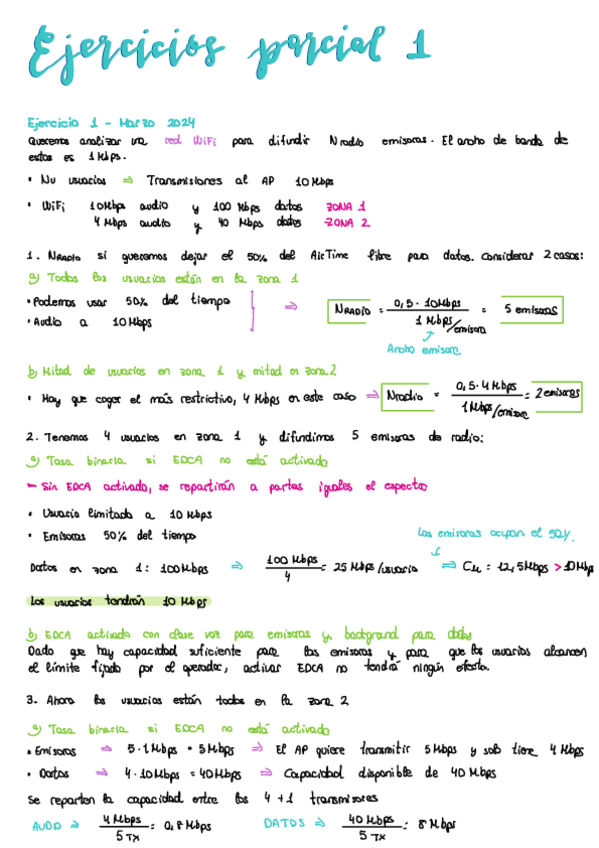 Ejercicios parcial 1
Ejercicio 1 - Marzo 2024
Queremos analizar una red WiFi para difundir Nradio emisoras. El ancho de banda de
estas es 1 Mbps.
• Nu usuarios ⇒ Transmisiones al AP 10 Mbps
• WiFi 10Mbps audio y 100 Mbps datos ZONA 1
4 Mbps audio y 40 Mbps datos ZONA 2
1. NRADIO si queremos dejar el 50% del AirTime libre para datos. Considerar 2 casos:
a) Todos los usuarios están en la zona 1
• Podemos usar 50% del tiempo
• Audio a 10 Mbps
⇒ NRADIO = 0,5 · 10Mbps / 1 Mbps/emisora = 5 emisoras
Ancho emisora
b) Mitad de usuarios en zona 1 y mitad en zona 2
• Hay que coger el más restrictivo, 4 Mbps en este caso ⇒ Nradio = 0,5 · 4 Mbps / 1 Mbps/emisora = 2 emisoras
2. Tenemos 4 usuarios en zona 1 y difundimos 5 emisoras de radio:
a) Tasa binaria si EDCA no está activado
- Sin EDCA activado, se repartirán a partes iguales el espectro
• Usuario limitado a 10 Mbps
• Emisoras 50% del tiempo
Las emisoras ocupan el 50%.
Datos en zona 1: 100Mbps ⇒ 100 Mbps / 4 = 25 Mbps/usuario ⇒ Cu = 12,5Mbps > 10Mbps
Los usuarios tendrán 10 Mbps
b) EDCA activado con clase voz para emisoras y background para datos
Dado que hay capacidad suficiente para las emisoras y para que los usuarios alcancen
el límite fijado por el operador, activar EDCA no tendrá ningún efecto.
3. Ahora los usuarios están todos en la zona 2
a) Tasa binaria si EDCA no está activado
• Emisoras ⇒ 5 · 1 Mbps = 5 Mbps ⇒ El AP quiere transmitir 5 Mbps y solo tiene 4 Mbps
• Datos ⇒ 4 · 10 Mbps = 40 Mbps ⇒ Capacidad disponible de 40 Mbps
Se reparten la capacidad entre los 4 + 1 transmisores
AUDIO ⇒ 4 Mbps / 5 TX = 0,8 Mbps DATOS ⇒ 40 Mbps / 5 TX = 8 Mbps